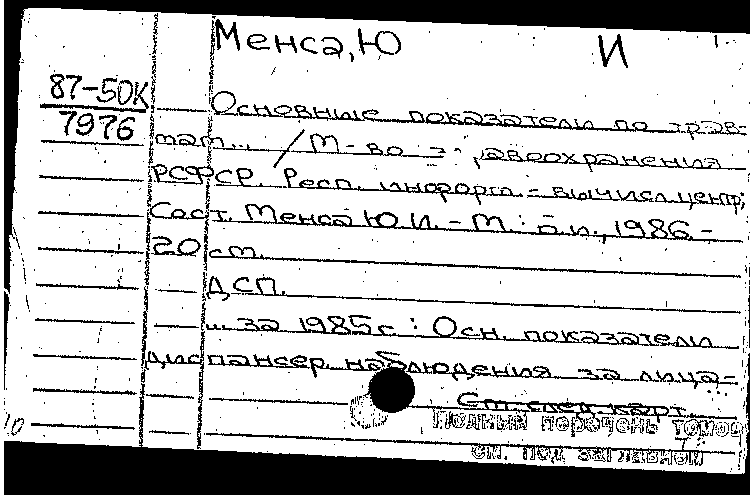 Менса, Ю И
87-50К
7976
Основные показатели по трав-
мат... / М-во здравоохранения
РСФСР. Респ. информ.-вычисл. центр;
Сост. Менса Ю.И. - М.: б.и., 1986.-
20 см.
ДСП.
... за 1985г: Осн. показатели
диспансер. наблюдения за лица-
См. след. карт.
Полный перечень томов
см. под заглавием